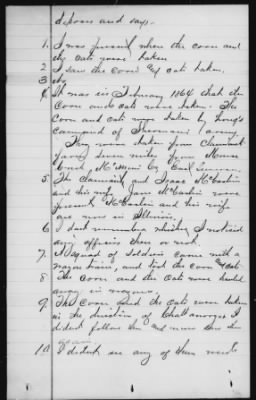 deposes and says.
1. I was present when the corn and
the oats were taken
2. I saw the corn and oats taken.
3. no
4. It was in February 1864 that the
corn and oats were taken. The
corn and oats were taken by
command of Sherman's army.
They were taken from claimant's
farm seven miles from
East Tennessee.
5. The claimant and Isaac McCaslin
and his wife Jane McCaslin were
present. McCaslin and his wife
are now in Illinois.
6. I dont remember whether I noticed
any officers there or not.
7. A squad of soldiers came with a
wagon train, and took the corn & oats.
8. The corn and the oats were hauled
away in wagons.
9. The corn and the oats were taken
in the direction of Chattanooga I
didnt follow them and never saw them
again.
10. I didnt see any of them